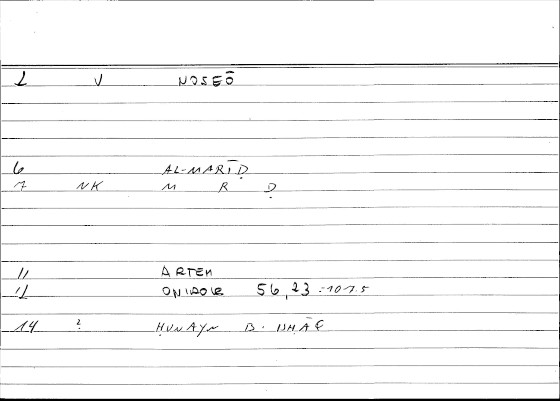 2 V NOSEŌ
6 AL-MARĪḌ
7 NK M R Ḍ
11 ARTEM
12 ONIROK 56,23 = 101.5
14 ? ḤUNAYN B. ISḤĀQ